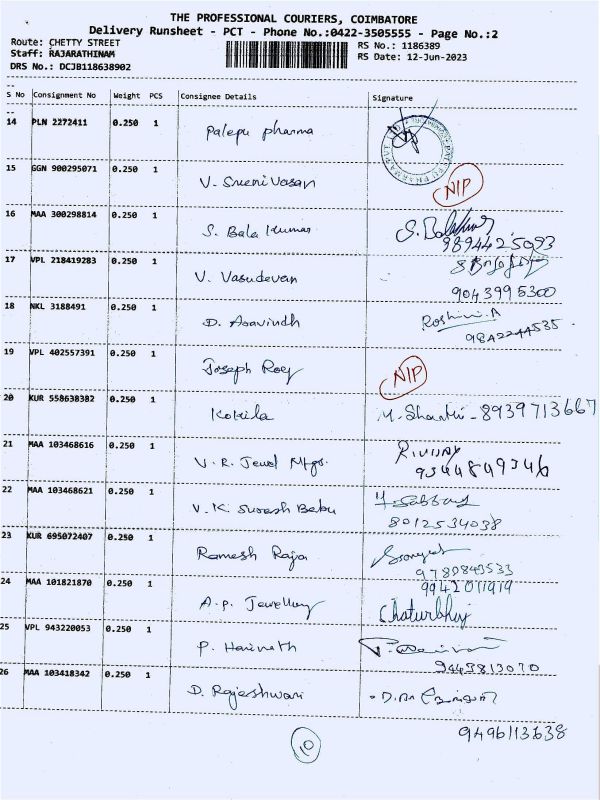 THE PROFESSIONAL COURIERS, COIMBATORE
Delivery Runsheet - PCT - Phone No.:0422-3505555 - Page No.:2
Route: CHETTY STREET RS No.: 1186389
Staff: RAJARATHINAM RS Date: 12-Jun-2023
DRS No.: DCJB118638902
S No Consignment No Weight PCS Consignee Details Signature
14 PLN 2272411 0.250 1 Palepu pharma
15 GGN 900295071 0.250 1 V. Sreenivasan NIP
16 MAA 300298814 0.250 1 S. Bala Kumar
9894425093
17 VPL 218419283 0.250 1 V. Vasudevan
9043995300
18 NKL 3188491 0.250 1 D. Aravindh Roshini.A
9842244535
19 VPL 402557391 0.250 1 Joseph Roy NIP
20 KUR 558638382 0.250 1 Kokila M. Shanthi - 8939713667
21 MAA 103468616 0.250 1 V. R. Jewel Mfgs. R.VIJAY
9344849346
22 MAA 103468621 0.250 1 V. K. Suresh Babu
8012534038
23 KUR 695072407 0.250 1 Ramesh Raja
9789849533
24 MAA 101821870 0.250 1 A. P. Jewellery 9942011919
Chaturbhuj
25 VPL 943220053 0.250 1 P. Harinath
9443813070
26 MAA 103418342 0.250 1 D. Rajeshwari
9496113638
10